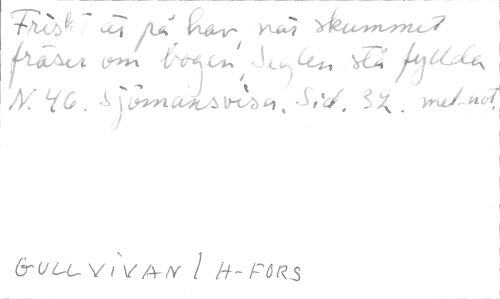 Friskt är på hav, när skummet
fräser om bogen, Seglen stå fyllda
N. 46. Sjömansvisa. Sid. 32. mel-not.
GULLVIVAN / H-FORS